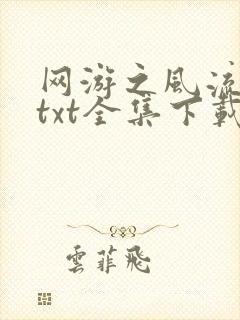 网游之风流
txt全集下载
雲菲飛